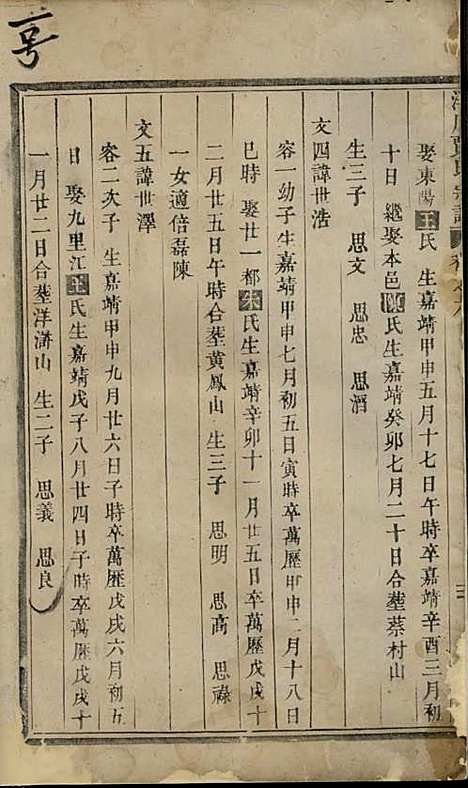 娶東陽王氏 生嘉靖甲申五月十七日午時卒嘉靖辛酉三月初
十日 繼娶本邑陳氏生嘉靖癸卯七月二十日合塟蔡村山
生三子 思文 思忠 思酒
文四諱世浩
容一幼子生嘉靖甲申七月初五日寅時卒萬歷甲申二月十八日
巳時 娶廿一都朱氏生嘉靖辛卯十一月廿五日卒萬歷戊戌十
二月廿五日午時合塟黄鳳山 生三子 思明 思高 思祿
一女適倍磊陳
文五諱世澤
容二次子 生嘉靖甲申九月廿六日子時卒萬歷戊戌六月初五
日 娶九里江王氏生嘉靖戊子八月廿四日子時卒萬歷戊戌十
一月廿二日合塟洋滸山 生二子 思義 思良